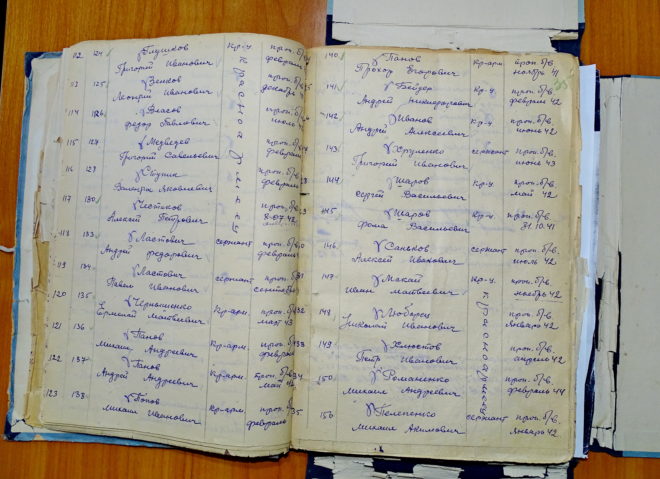 112 124. Глушков кр-ц проп. б/в
Григорий Иванович февраль
113 125. Зенков проп. б/в
Леонтий Иванович декабрь
114 126. Власов проп. б/в
Федор Павлович июль
115 127. Медведев проп. б/в
Григорий Савельевич февраль
116 129 проп. б/в
Валерий Яковлевич февраль
117 130. Честков проп. б/в
Алексей Петрович 8.07.42
118 133. Ластович сержант проп. б/в
Андрей Федорович февраль
119 134. Ластович сержант проп. б/в
Павел Иванович сентябрь
120 135. Чернышенко Кр-арм. проп. б/в
Ермолай Матвеевич март 43
121 136 Панов Кр-арм. проп. б/в
Михаил Андреевич февраль
122 137. Панов Кр-арм. проп. б/в
Андрей Андреевич май
123 138. Попов Кр-арм. проп. б/в
Михаил Иванович февраль
красноармеец
140. Панов Кр-арм проп. б/в
Прохор Егорович ноябрь 41
141. Бейдер Кр-ц. проп. б/в
Андрей Никифорович февраль 42
142. Иванов Кр-ц проп. б/в
Андрей Алексеевич июнь 42
143. Хруленко сержант проп. б/в
Григорий Иванович июнь 43
144. Шаров Кр-ц проп. б/в
Сергей Васильевич май 42
145 Шаров Кр-ц проп. б/в
Фома Васильевич 31.10.41
146. Саньков сержант проп. б/в
Алексей Иванович июль 42
147. Макай Кр-ц. проп. б/в
Иван Матвеевич ноябрь 42
148 проп. б/в
Николай Иванович январь 42
149 проп. б/в
Петр Иванович апрель 42
150. Романенко проп. б/в
Михаил Андреевич февраль 44
156 Пелепенко сержант проп. б/в
Михаил Акимович январь 42
красноармеец